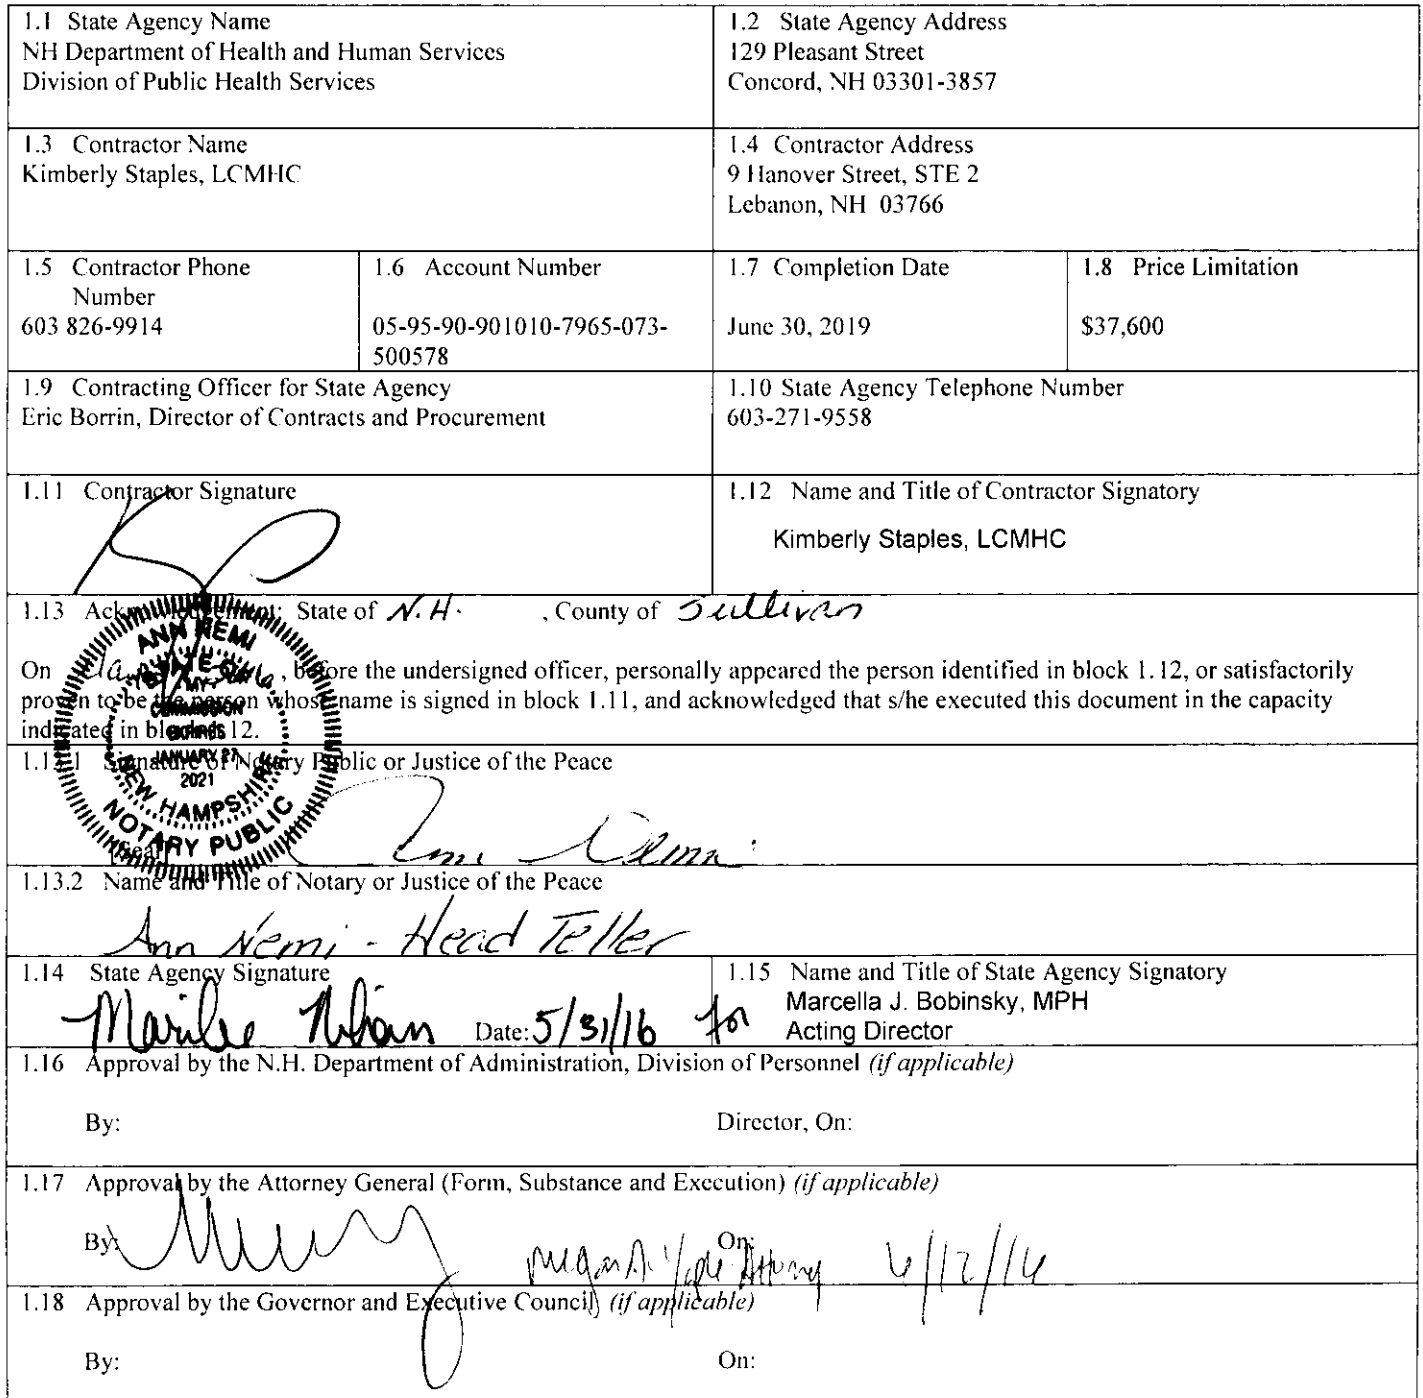 1.1 State Agency Name
NH Department of Health and Human Services
Division of Public Health Services
1.2 State Agency Address
129 Pleasant Street
Concord, NH 03301-3857
1.3 Contractor Name
Kimberly Staples, LCMHC
1.4 Contractor Address
9 Hanover Street, STE 2
Lebanon, NH 03766
1.5 Contractor Phone
Number
603 826-9914
1.6 Account Number
05-95-90-901010-7965-073-
500578
1.7 Completion Date
June 30, 2019
1.8 Price Limitation
$37,600
1.9 Contracting Officer for State Agency
Eric Borrin, Director of Contracts and Procurement
1.10 State Agency Telephone Number
603-271-9558
1.11 Contractor Signature
1.12 Name and Title of Contractor Signatory
Kimberly Staples, LCMHC
1.13 Acknowledgement: State of N.H. , County of Sullivan
On , before the undersigned officer, personally appeared the person identified in block 1.12, or satisfactorily
proven to be the person whose name is signed in block 1.11, and acknowledged that s/he executed this document in the capacity
indicated in block 1.12.
ANN NEMI
STATE OF
MY
COMMISSION
EXPIRES
JANUARY 27
2021
NEW HAMPSHIRE
NOTARY PUBLIC
1.13.1 Signature of Notary Public or Justice of the Peace
Ann Nemi
[Seal]
1.13.2 Name and Title of Notary or Justice of the Peace
Ann Nemi - Head Teller
1.14 State Agency Signature
Date: 5/31/16 for
1.15 Name and Title of State Agency Signatory
Marcella J. Bobinsky, MPH
Acting Director
1.16 Approval by the N.H. Department of Administration, Division of Personnel (if applicable)
By: Director, On:
1.17 Approval by the Attorney General (Form, Substance and Execution) (if applicable)
By: On: Attorney 6/12/16
1.18 Approval by the Governor and Executive Council (if applicable)
By: On: